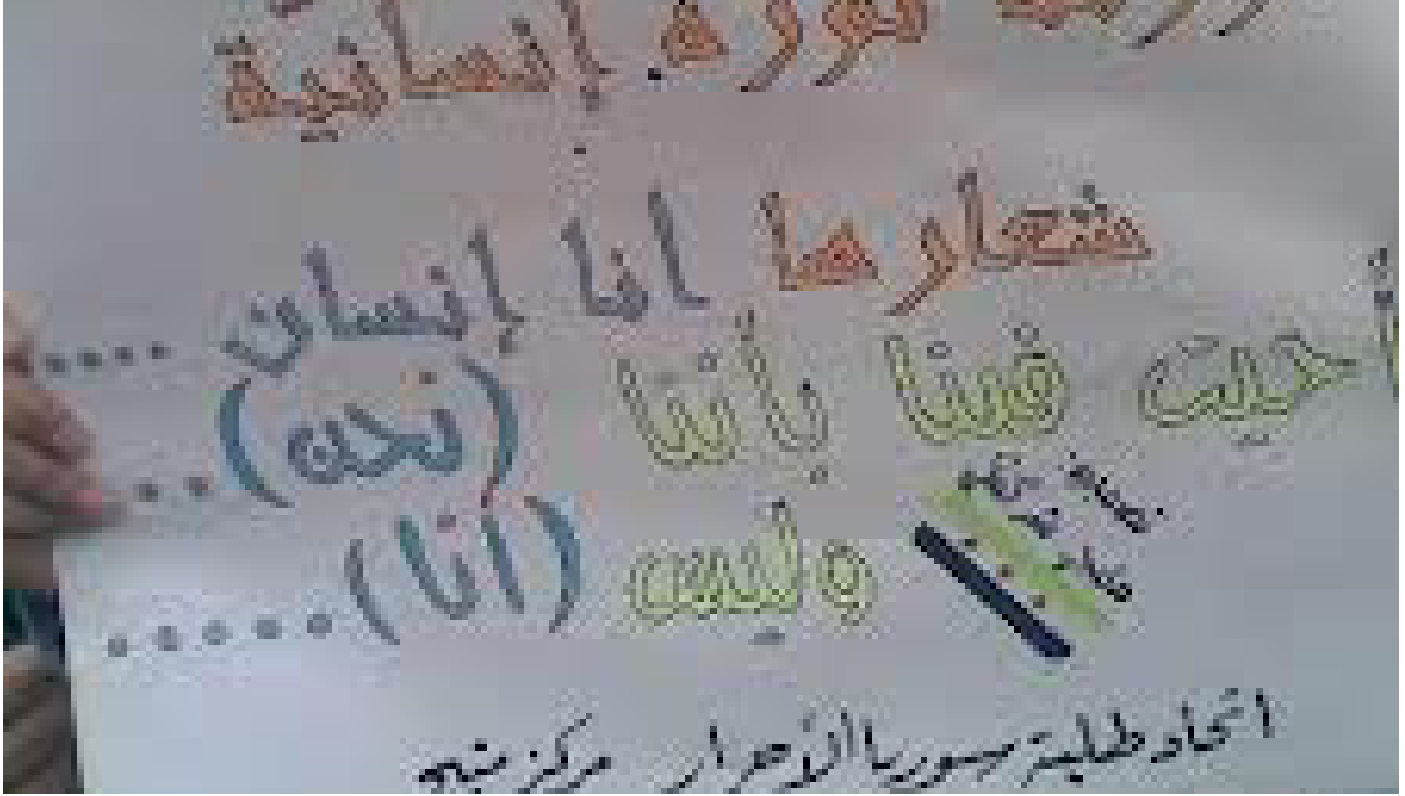 ثورة إنسانية
شعارها انا إنسان ....
أحيت فينا بأننا (نحن) ..
وليس (أنا) .....
اتحاد طلبة سوريا الأحرار مركز منبج